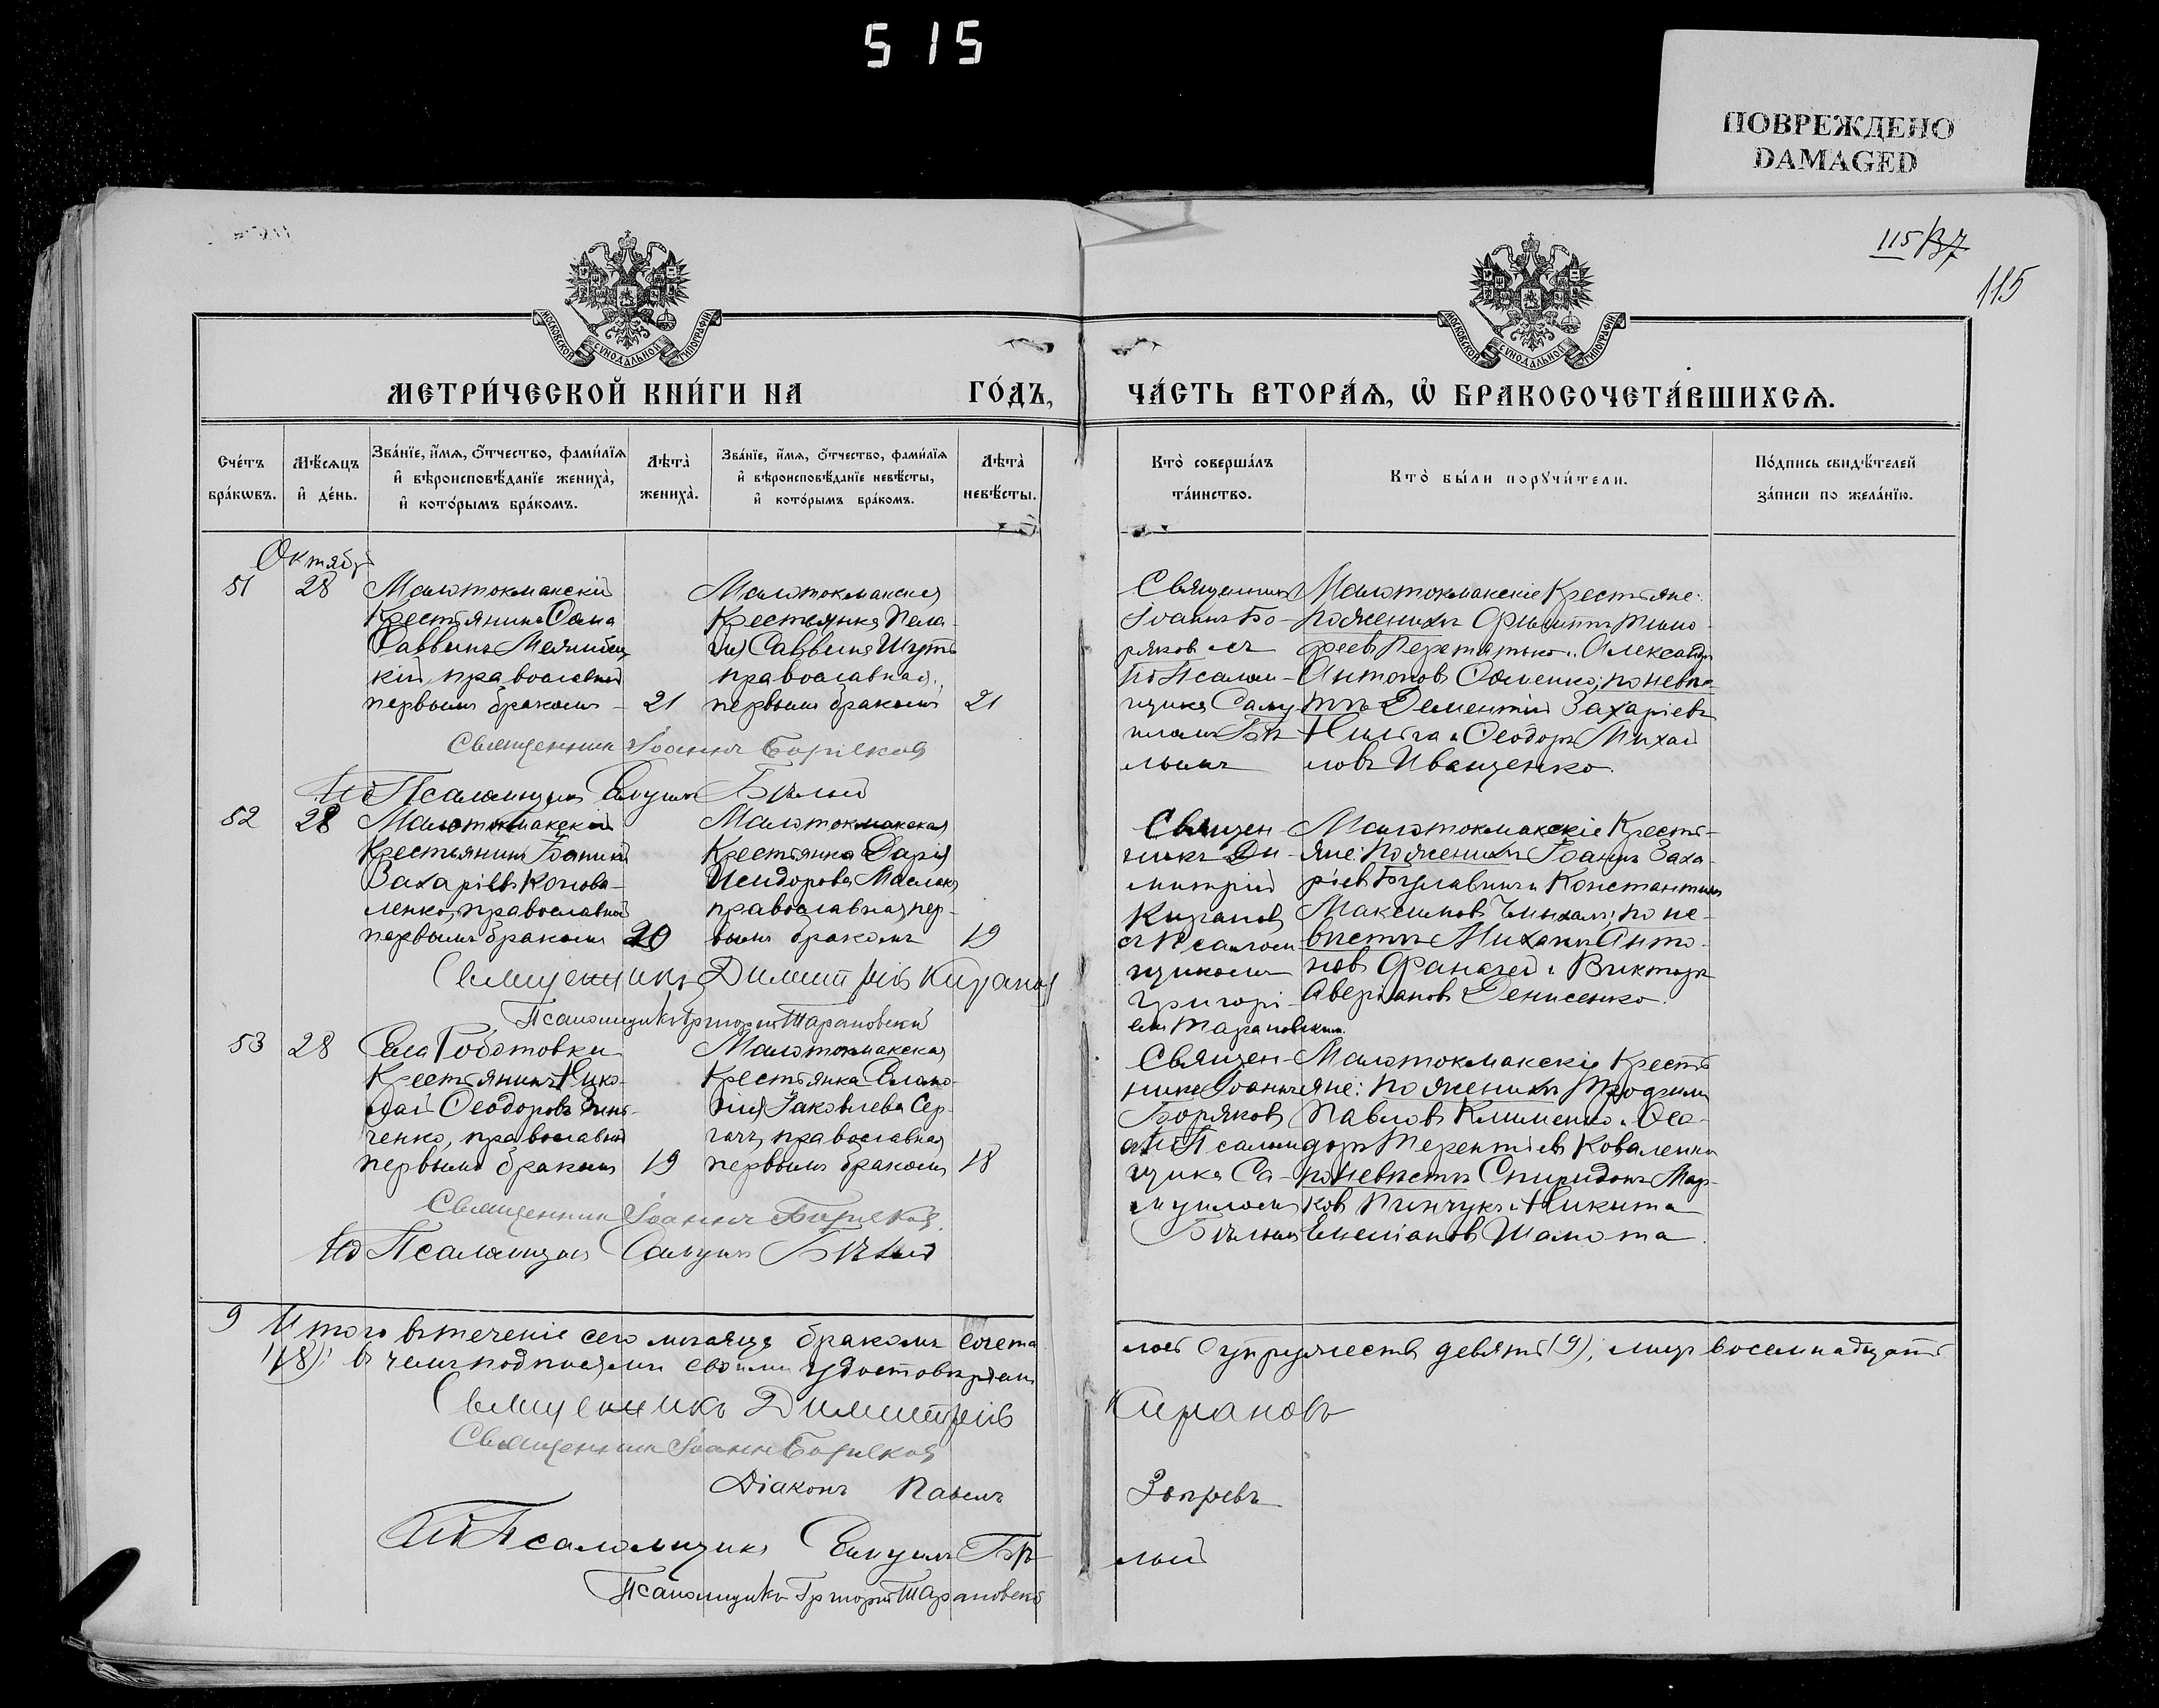 515
ПОВРЕЖДЕНО
DAMAGED
115
115
МОСКОВСКОЙ СѴНОДАЛЬНОЙ ТИПОГРАФІИ
МОСКОВСКОЙ СѴНОДАЛЬНОЙ ТИПОГРАФІИ
МЕТРИ́ЧЕСКОЙ КНИ́ГИ НА ГО́ДЪ,
ЧА́СТЬ ВТОРА́Ѧ, Ѽ БРАКОСОЧЕТА́ВШИХСѦ.
Сче́тъ бра́кѡвъ.
Мѣ́сѧцъ и҆ де́нь.
Зва́нїе, и҆́мѧ, ѻ҆́тчество, фами́лїѧ и҆ вѣроисповѣ́данїе жениха̀, и҆ кото́рымъ бра́комъ.
Лѣта̀ жениха̀.
Зва́нїе, и҆́мѧ, ѻ҆́тчество, фами́лїѧ и҆ вѣроисповѣ́данїе невѣ́сты, и҆ кото́рымъ бра́комъ.
Лѣта̀ невѣ́сты.
Кто̀ соверша́лъ та́инство.
Кто̀ бы́ли порꙋчи́тели.
По́дпись свидѣ́телей за́писи по жела́нїю.
Октябр
51
28
Малотокмакскій
Крестьянинъ
Саввинъ
кій, православный
первымъ бракомъ
21
Малотокмакская
Крестьянка Пела-
гія Саввина
православная,
первымъ бракомъ
21
Священникъ
Іоаннъ Бо-
ряковъ съ
Ид Псалом-
щика Саму-
иломъ Бѣ-
лымъ
Малотокмакскіе Крестьяне:
по женихѣ Филиппъ Тимо-
феевъ Перетятько и Александръ
Антоновъ Фоменко; по невѣ-
стѣ Дементій Захаріевъ
и Ѳеодоръ Михай-
ловъ Иващенко.
Священникъ Іоаннъ Боряковъ
Ид Псаломщика Самуилъ Бѣлый
52
28
Малотокмакскій
Крестьянинъ
Захаріевъ Конова-
ленко, православный
первымъ бракомъ
20
Малотокмакская
Крестьянка Дарія
Исидорова
православная, пер-
вымъ бракомъ
19
Священ-
никъ Ди-
митрій
Кирановъ
съ Псалом-
щикомъ
Григорі-
емъ Тарановскимъ.
Малотокмакскіе Кресть-
яне: по женихѣ Іоаннъ Заха-
ріевъ и Константинъ
Максимовъ по не-
вѣстѣ Михаилъ Анто-
новъ и Викторъ
Аверіановъ Денисенко.
Священникъ Димитрій Кирановъ
Псаломщикъ Григорій Тарановскій
53
28
Села
Крестьянинъ Нико-
лай Ѳеодоровъ
ченко, православный
первымъ бракомъ
19
Малотокмакская
Крестьянка
Іаковлева Сер-
православная
первымъ бракомъ
18
Священ-
никъ Іоаннъ
Боряковъ
съ Ид Псалом-
щика Са-
муиломъ
Бѣлымъ
Малотокмакскіе Кресть-
яне: по женихѣ Трофимъ
Павловъ Клименко и Ѳео-
доръ Терентіевъ Коваленко
по невѣстѣ Спиридонъ Мар-
ковъ Пинчукъ и Никита
Емеліановъ Шамота.
Священникъ Іоаннъ Боряковъ.
Ид Псаломщика Самуилъ Бѣлый
9 Итого въ теченіе сего мѣсяца бракомъ сочета- лось супружествъ девять (9), лицъ восемнадцать
(18); въ чемъ подписями своими удостовѣряемъ
Священникъ Димитрій Кирановъ
Священникъ Іоаннъ Боряковъ
Діаконъ Павелъ
Ид Псаломщика Самуилъ Бѣ- лый
Псаломщикъ Григорій Тарановскій